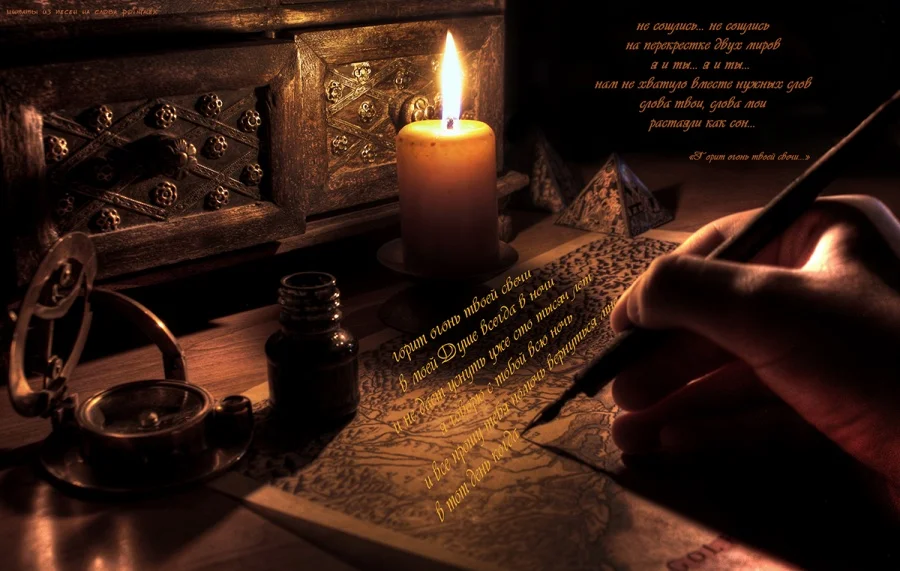 цитаты из песен на слова
не сошлись... не сошлись
на перекрестке двух миров
я и ты... я и ты...
нам не хватило вместе нужных слов
слова твои, слова мои
растаяли как сон...
«Горит огонь твоей свечи...»
горит огонь твоей свечи
в моей Душе всегда в ночи
и не дает уснуть уже сто тысяч лет
я с тобой всю ночь
и все прошу тебя помочь вернуться
в тот день когда
GOLD